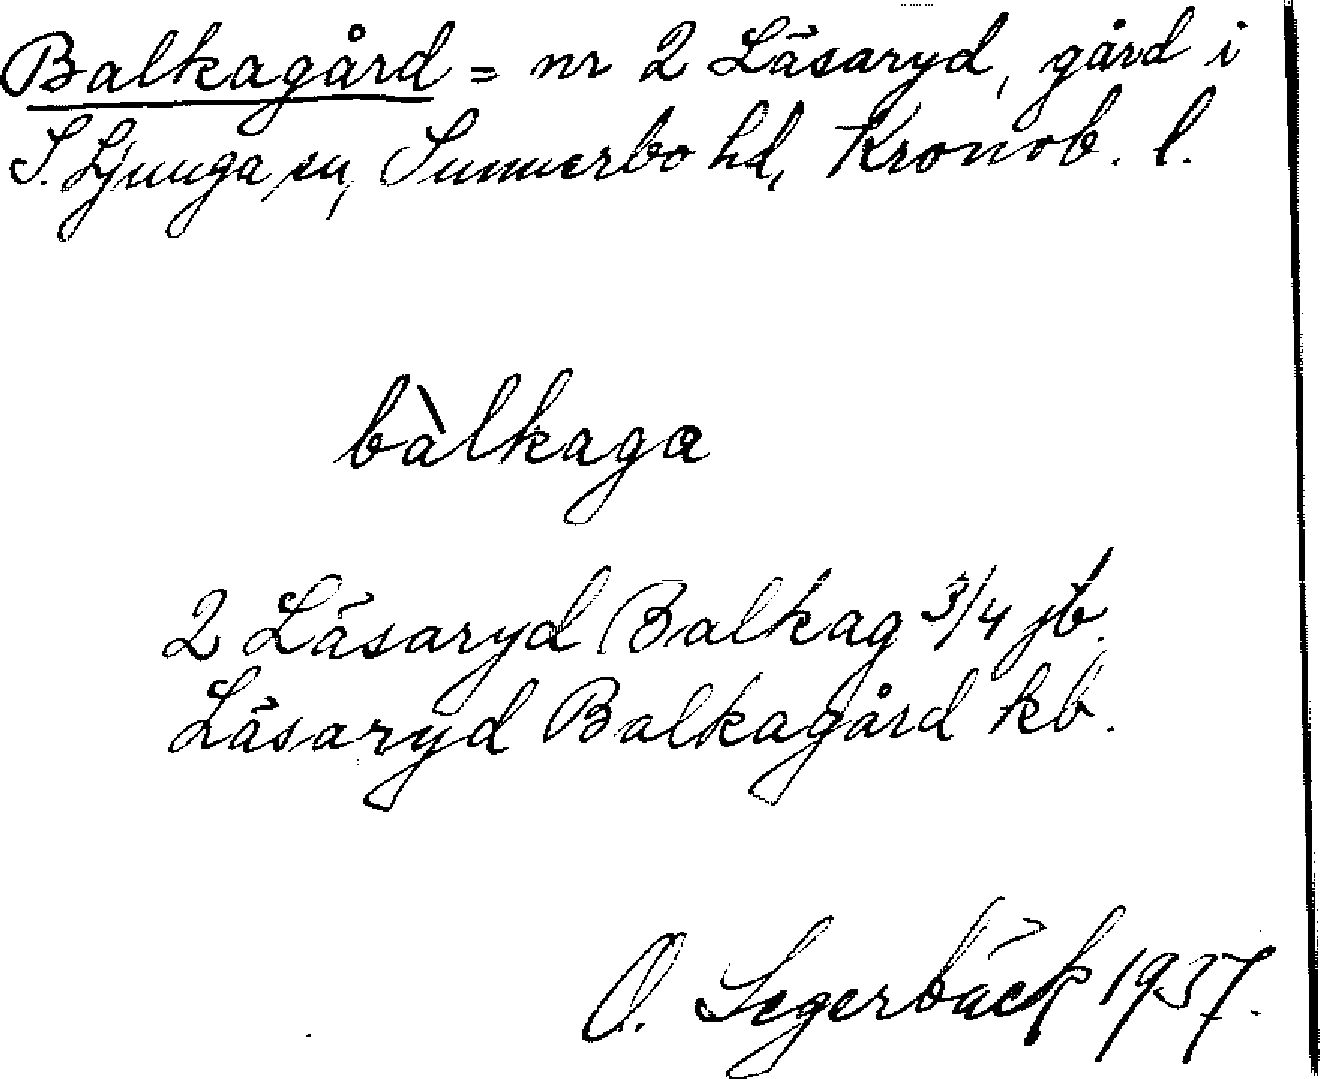 Balkagård = nr 2 Läsaryd, gård i
S. Ljunga sn, Sunnerbo hd, Kronob. l.
bàlkaga
2 Läsaryd Balkag 3/4 jb.
Läsaryd Balkagård kb.
O. Segerbäck 1937.